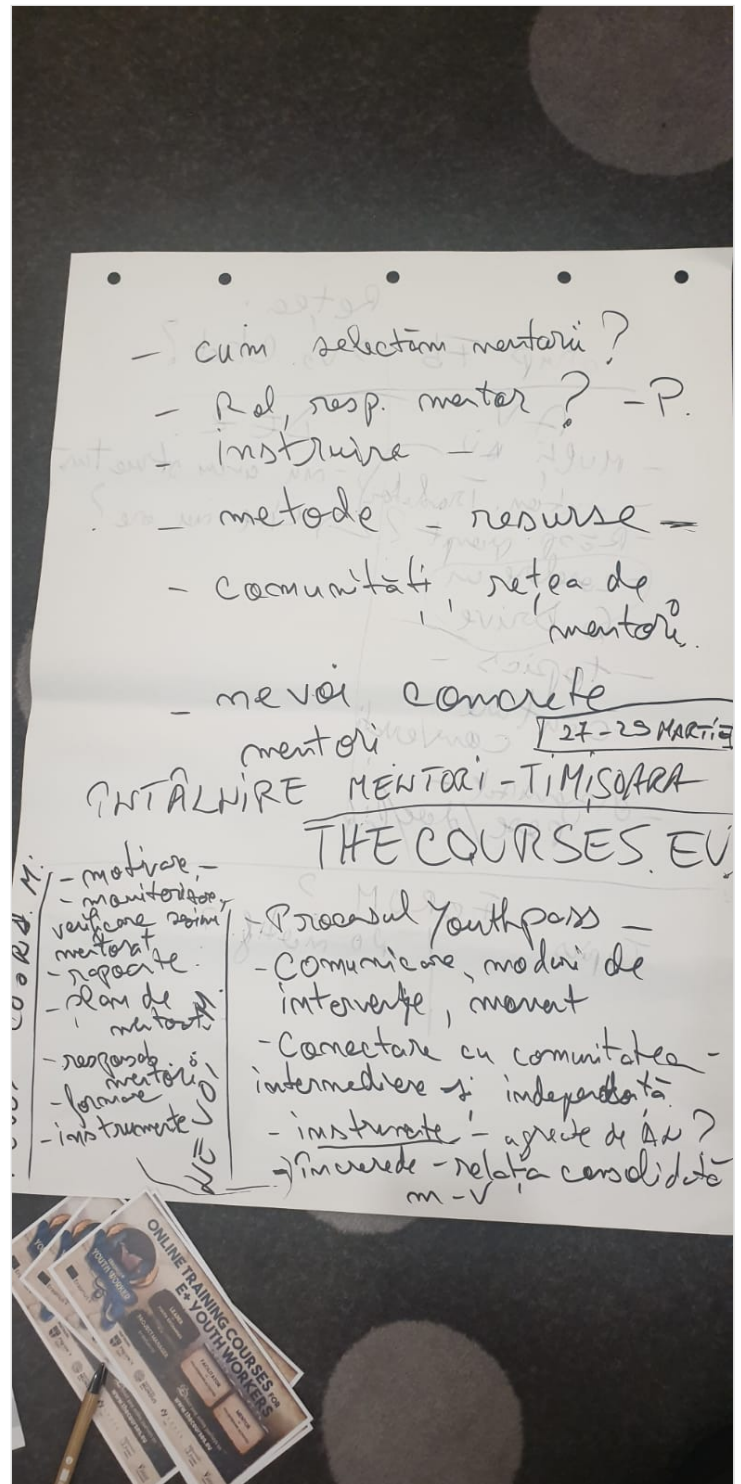 - cum selectăm mentorii?
- Rol, resp. mentor? - P.
- instruire -
- metode - resurse -
- Comunități, rețea de
mentori.
- nevoi concrete
mentori
27-29 MARTIE
ÎNTÂLNIRE MENTORI - TIMIȘOARA
THE COURSES.EU
COORD. M:
- motivare, -
- monitorizare,
verificare
mentorat
- rapoarte.
- plan de
mentorat
- responsab.
mentori
- formare
- instrumente
NEVOI M.
- Procesul Youthpass -
- Comunicare, moduri de
intervenție,
- Conectare cu comunitatea -
intermediere și independență
- instrumente - agreate de AN?
- încredere - relația consolidată
m-v
ONLINE TRAINING COURSES FOR
E+ YOUTH WORKERS
YOUTH WORKER
LEADER
PROJECT MANAGER
FACILITATOR
MENTOR